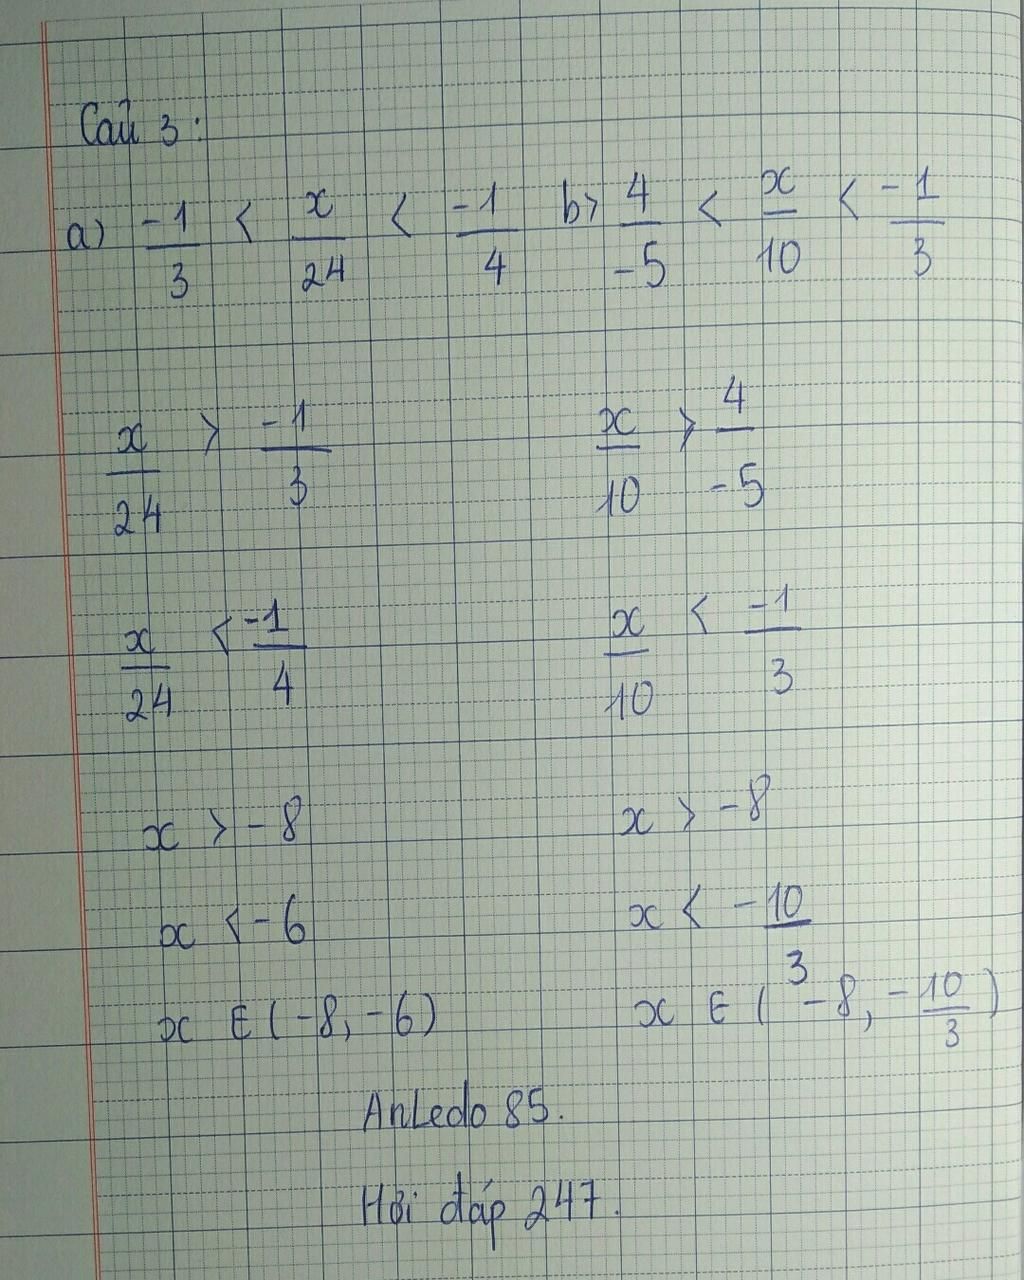 Caü 3:
a) -1/3 < x/24 < -1/4 b> 4/-5 < x/10 < -1/3
x/24 > -1/3 x/10 > 4/-5
x/24 < -1/4 x/10 < -1/3
x > -8 x > -8
x < -6 x < -10/3
x ∈ (-8, -6) x ∈ ( -8, -10/3 )
AnLedo 85.
Hỏi đáp 247.